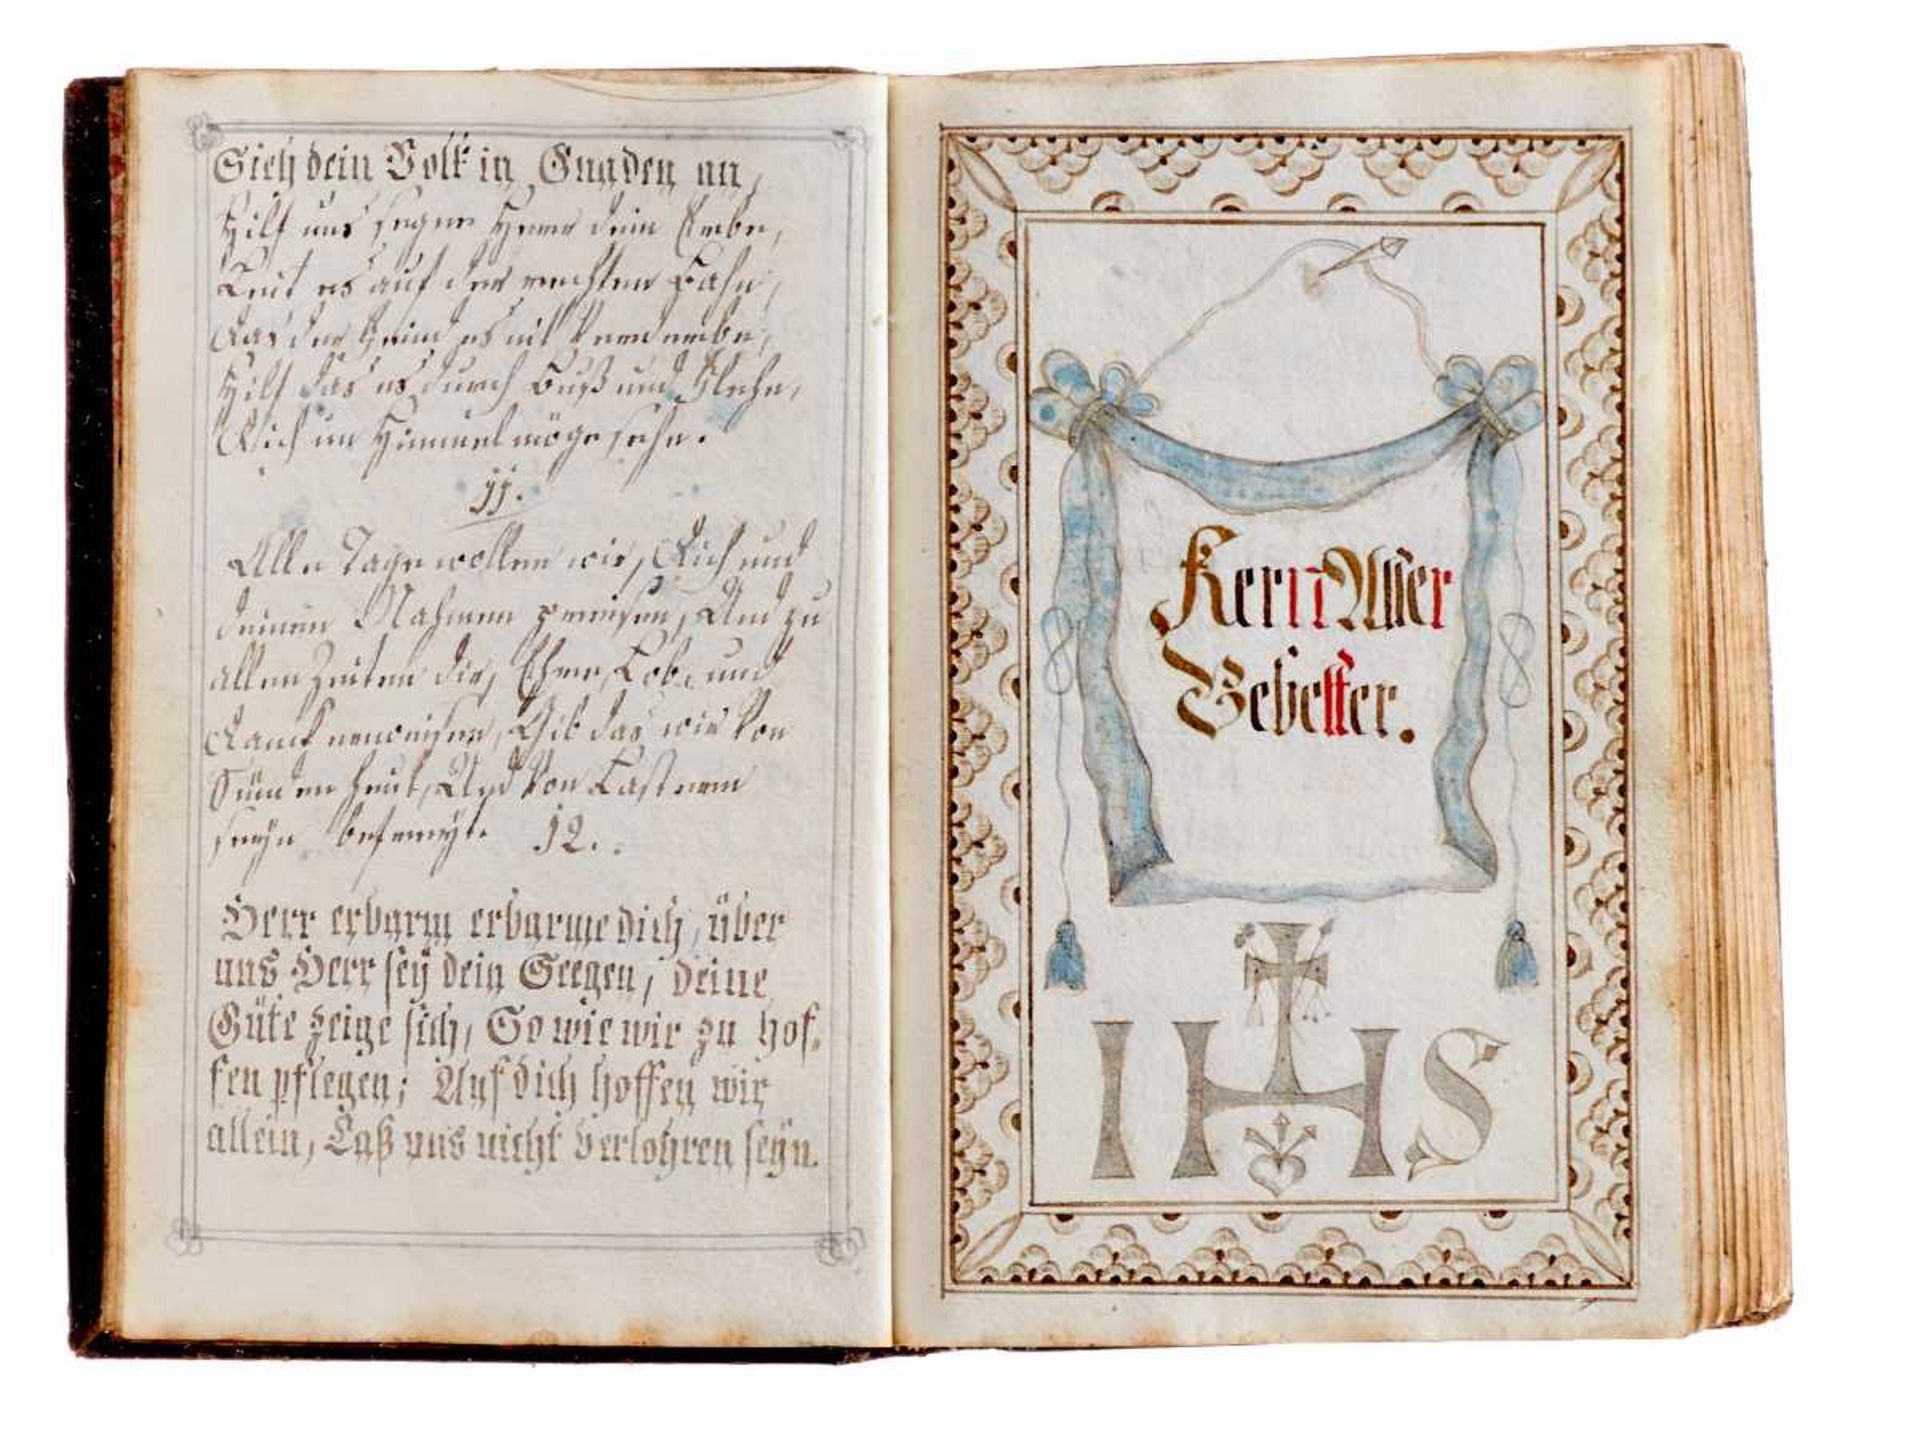 Sieh dein Volk in Gnaden an,
Hilf uns segne Herr dein Erbe,
Leit es auf der rechten Bahn,
Das der Feind es nit Verderbe,
Hilf das es durch Buß und Flehn,
Dich im Himmel möge sehn.
11.
Alle Tage wollen wir, Dich und
deinen Nahmen preisen, Und zu
allen Zeiten dir, Ehre, Lob, und
Danck erweisen, Gib das wir Von
Sünden heut, Und Von Lastern
seyn befreyt. 12.
Herr erbarm erbarme dich, über
uns Herr seÿ dein Seegen, deine
Güte zeige sich, So wie wir zu hof-
fen pflegen; Auf dich hoffen wir
allein, Laß uns nicht Verlohren seÿn.
Kern Aller
Gebetter.
IHS